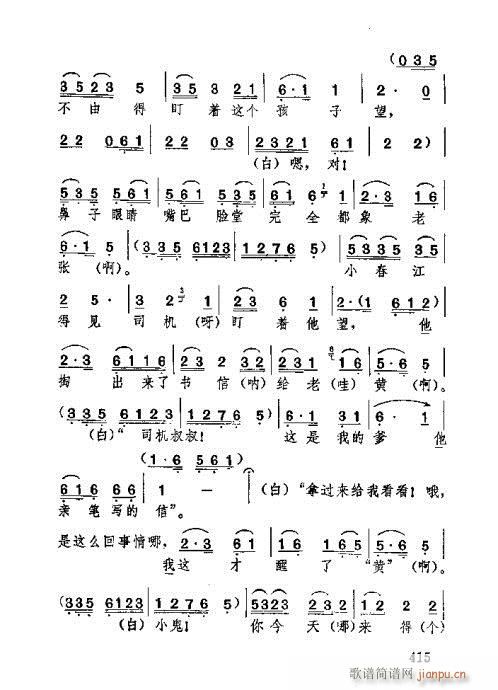 (035
3523 5 | 35 3 21 | 6·1 1 | 2·0
不由得盯着这个孩子望，
22 061 | 22 03 | 2321 61 | 2 2)
(白)嗯，对！
535 561 | 535 561 | 5·6 1 | 2·3 16
鼻子眼睛嘴巴脸堂完全都象老
6·1 5 | (335 6123 | 1276 5) | 5335 35
张(啊)。 小春江
2 5· | 3 2 1 | 23 6 1 | 2·(1 612)
得见司机(呀)盯着他望， 他
2·3 6116 | 23 2 32 | 216 12 | 2·3 5
掏出来了书信(呐)给老(哇)黄(啊)。
(335 6123 | 1276 5) | 6·1 31 | 6· 1
(白)“司机叔叔！ 这是我的爹他
(1·6 561)
616 66 | 1 － | (白)“拿过来给我看看！哦，
亲笔写的信”。
是这么回事情哪， 2·3 61 | 16 165 | 5·6 5
我这才醒了“黄”(啊)。
(335 6123 | 1276 5) | 5323 21 | 2 12 16
(白)小鬼！ 你今天(哪)来得(个)
415
歌谱简谱网
jianpu.cn